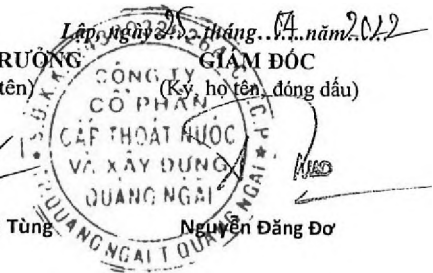 Lập, ngày 25 tháng 04 năm 2012
RƯỞNG GIÁM ĐỐC
tên) (Ký, họ tên, đóng dấu)
CÔNG TY
CỔ PHẦN
CẤP THOÁT NƯỚC
VÀ XÂY DỰNG
QUẢNG NGÃI
Tùng Nguyễn Đăng Đơ